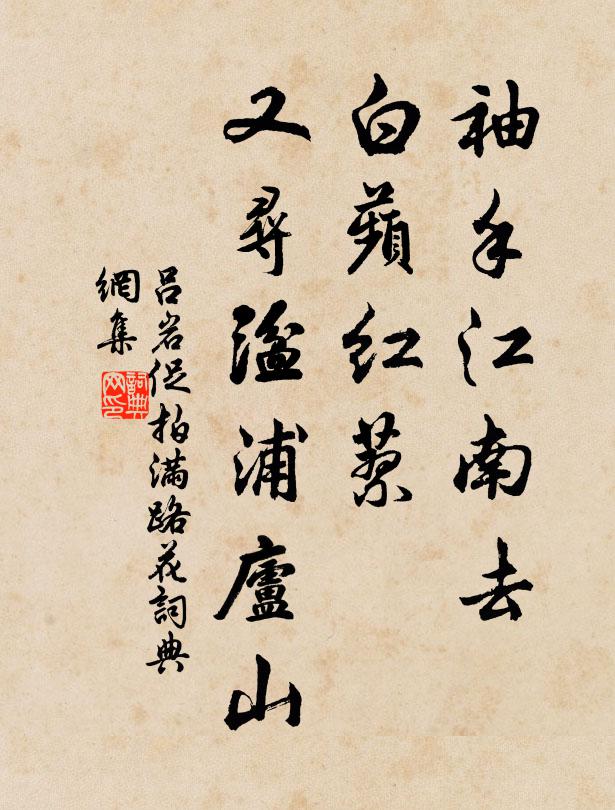 袖手江南去
白蘋紅蓼
又尋湓浦廬山
呂岩促拍滿路花詞典
網集
詞典
网印